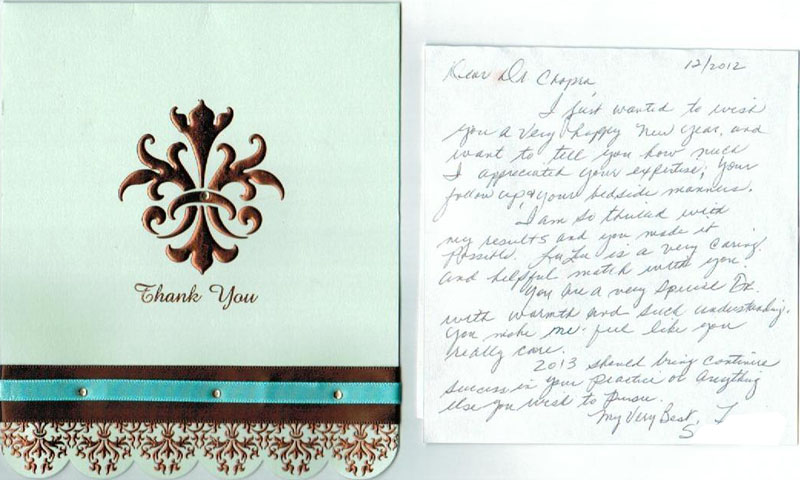 Thank You
12/2012
Dear Dr Chopra
I just wanted to wish
you a very happy New Year, and
want to tell you how much
I appreciated your expertise, your
follow up & your bedside manners.
I am so thrilled with
my results and you made it
possible. LuLu is a very caring
and helpful match with you.
You are a very special Dr.
with warmth and such understanding.
You make me feel like you
really care.
2013 should bring continue
success in your practice or anything
else you wish to pursue.
My Very Best,